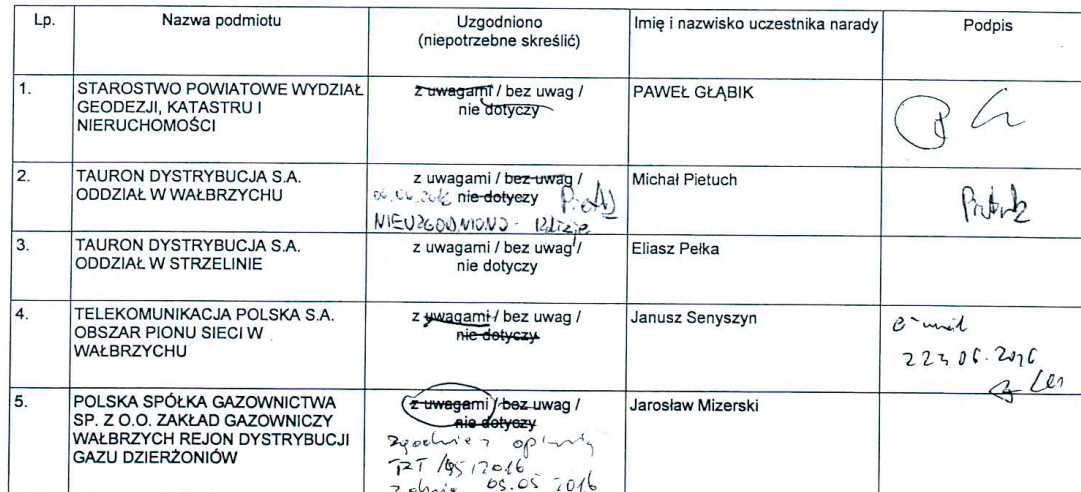 Lp. Nazwa podmiotu Uzgodniono (niepotrzebne skreślić) Imię i nazwisko uczestnika narady Podpis
1. STAROSTWO POWIATOWE WYDZIAŁ GEODEZJI, KATASTRU I NIERUCHOMOŚCI z uwagami / bez uwag / nie dotyczy PAWEŁ GŁĄBIK
2. TAURON DYSTRYBUCJA S.A. ODDZIAŁ W WAŁBRZYCHU z uwagami / bez uwag / nie dotyczy Michał Pietuch
06.06.2016
NIEUZGODNIONO - kolizje
3. TAURON DYSTRYBUCJA S.A. ODDZIAŁ W STRZELINIE z uwagami / bez uwag / nie dotyczy Eliasz Pełka
4. TELEKOMUNIKACJA POLSKA S.A. OBSZAR PIONU SIECI W WAŁBRZYCHU z uwagami / bez uwag / nie dotyczy Janusz Senyszyn
e-mail
06.2016
5. POLSKA SPÓŁKA GAZOWNICTWA SP. Z O.O. ZAKŁAD GAZOWNICZY WAŁBRZYCH REJON DYSTRYBUCJI GAZU DZIERŻONIÓW z uwagami / bez uwag / nie dotyczy Jarosław Mizerski
zgodnie z opinią
z dnia 05.05 2016